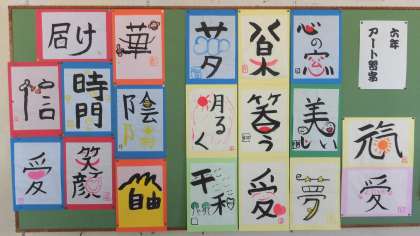 六年
アート習字
元気
愛
心の窓
美しい
夢
楽
笑う
愛
夢
明るく
平和
華
陰陽
自由
届け
時間
笑顔
信
愛